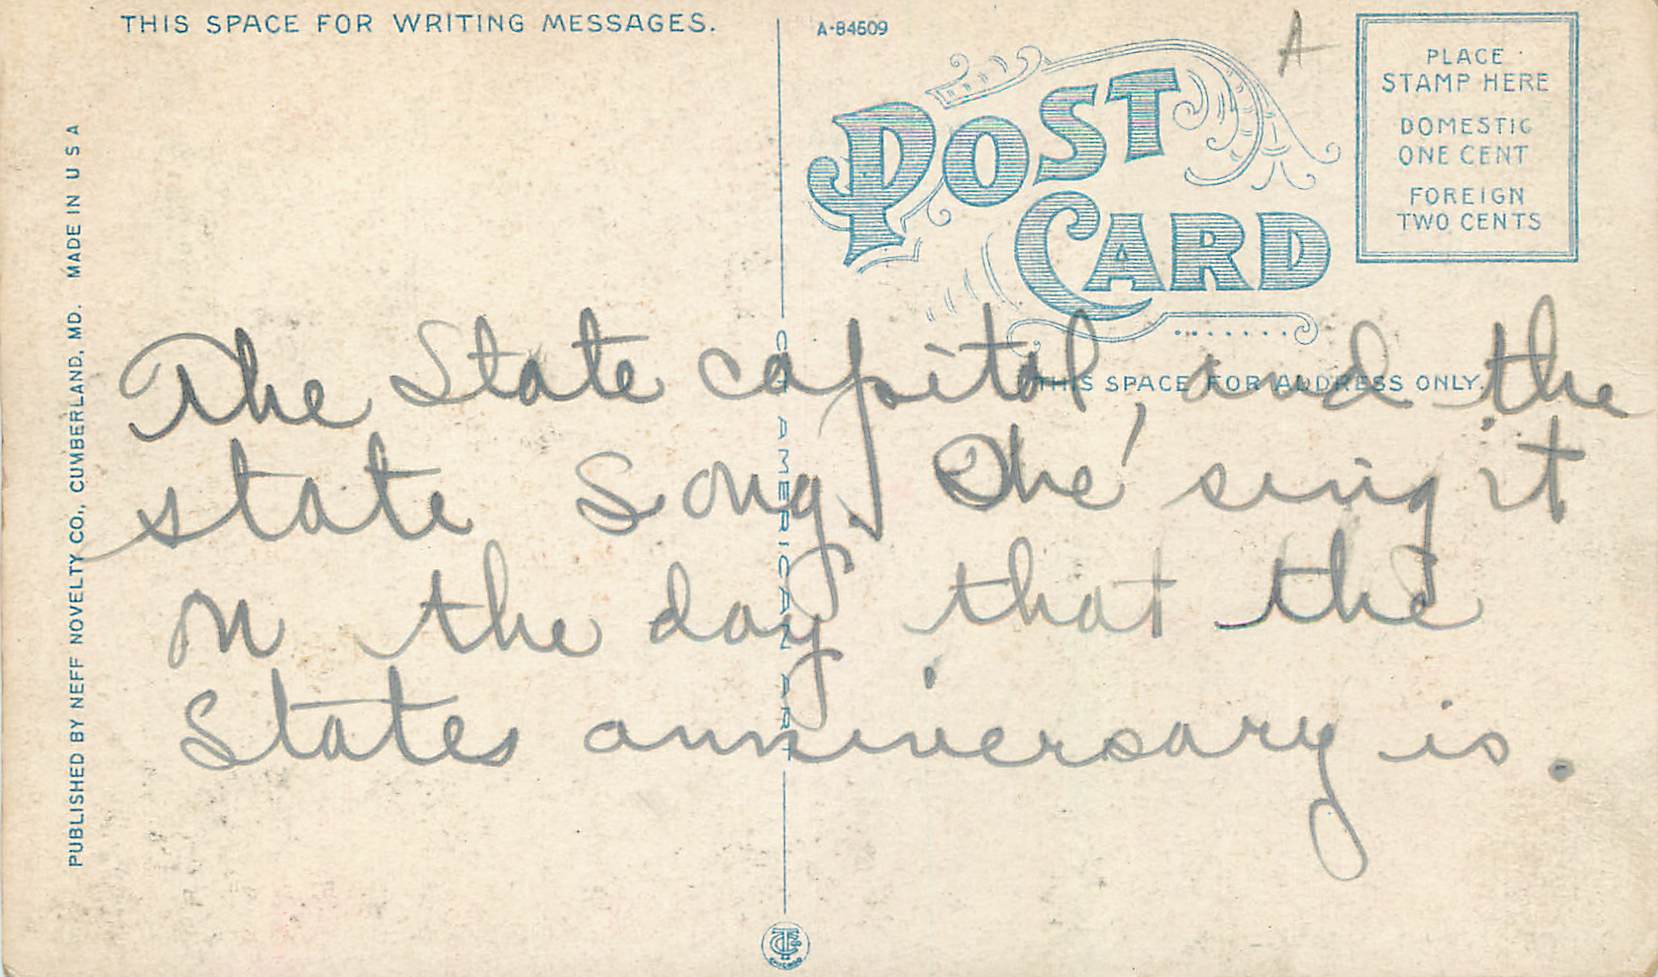 THIS SPACE FOR WRITING MESSAGES.
A-84509
A
POST
CARD
PLACE
STAMP HERE
DOMESTIC
ONE CENT
FOREIGN
TWO CENTS
THIS SPACE FOR ADDRESS ONLY.
PUBLISHED BY NEFF NOVELTY CO., CUMBERLAND, MD. MADE IN U S A
C. T. AMERICAN ART
The State capitol, and the
state Song. She sing it
on the day that the
States anniversary is.
CHICAGO